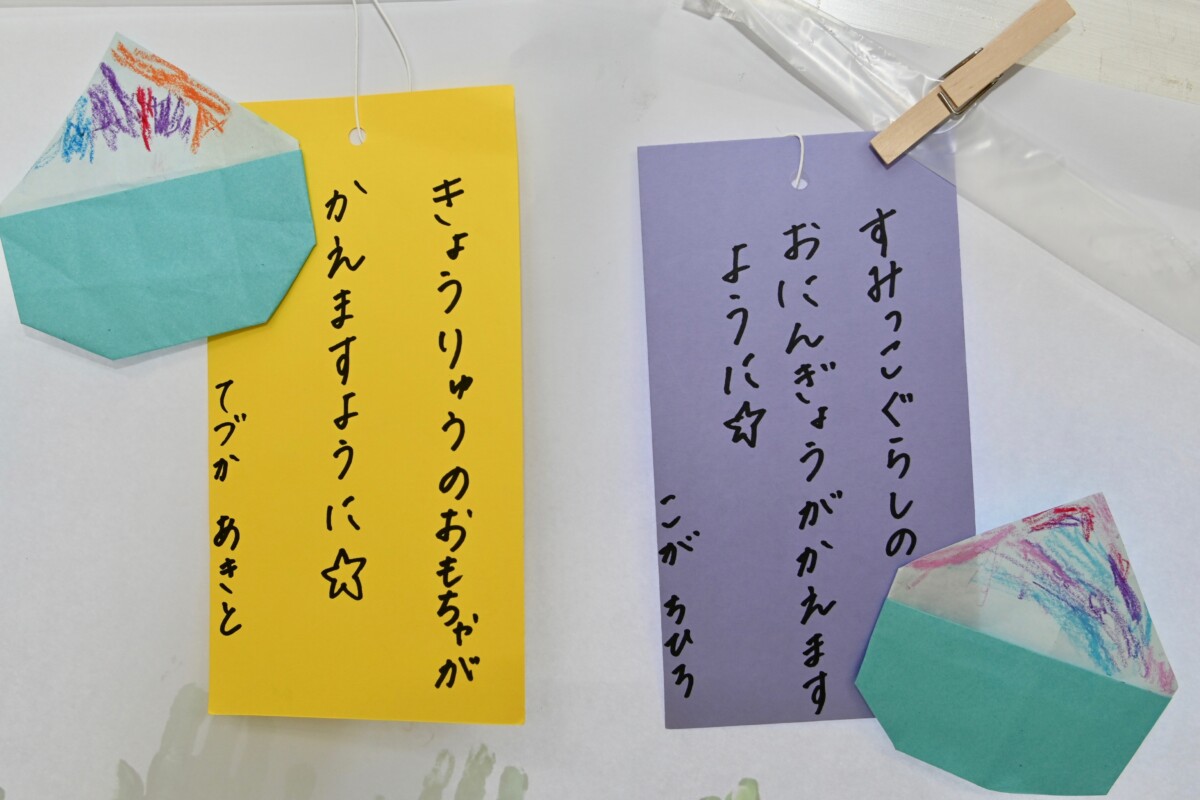 きょうりゅうのおもちゃが
かえますように☆
てづか あきと
すみっこぐらしの
おにんぎょうがかえます
ように☆
こが ちひろ